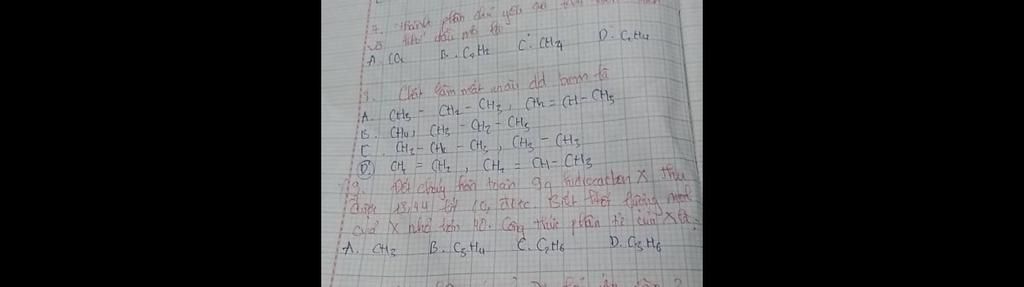 7. Thành phần chủ yếu
A. CO2 B. C2H2 C. CH4 D. C2H4
18. Chất làm mất màu dd brom là
A. CH3 - CH2 - CH3, CH2 = CH - CH3
B. CH4, CH3 - CH2 - CH3
C. CH3 - CH2 - CH3, CH3 - CH3
D. CH2 = CH2, CH2 = CH - CH3
19. Đốt cháy hoàn toàn 9g hidrocacbon X thu
được 13,44 lít CO2 đktc. Biết khối lượng mol
của X nhỏ hơn 40. Công thức phân tử của X là:
A. CH3 B. C3H4 C. C2H6 D. C3H6